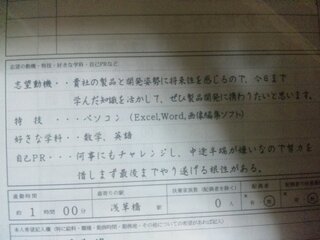 志望の動機・特技・好きな学科・自己PRなど
志望動機・・貴社の製品と開発姿勢に将来性を感じるので、今日まで
学んだ知識を活かして、ぜひ製品開発に携わりたいと思います。
特　技・・・パソコン（Excel,Word,画像編集ソフト）
好きな学科・・数学、英語
自己PR・・・何事にもチャレンジし、中途半端が嫌いなので努力を
惜しまず最後までやり遂げる根性がある。
通勤時間　最寄りの駅　扶養家族数（配偶者を除く）　配偶者
約 1 時間 00分　浅草橋 駅　0 人　有
本人希望記入欄